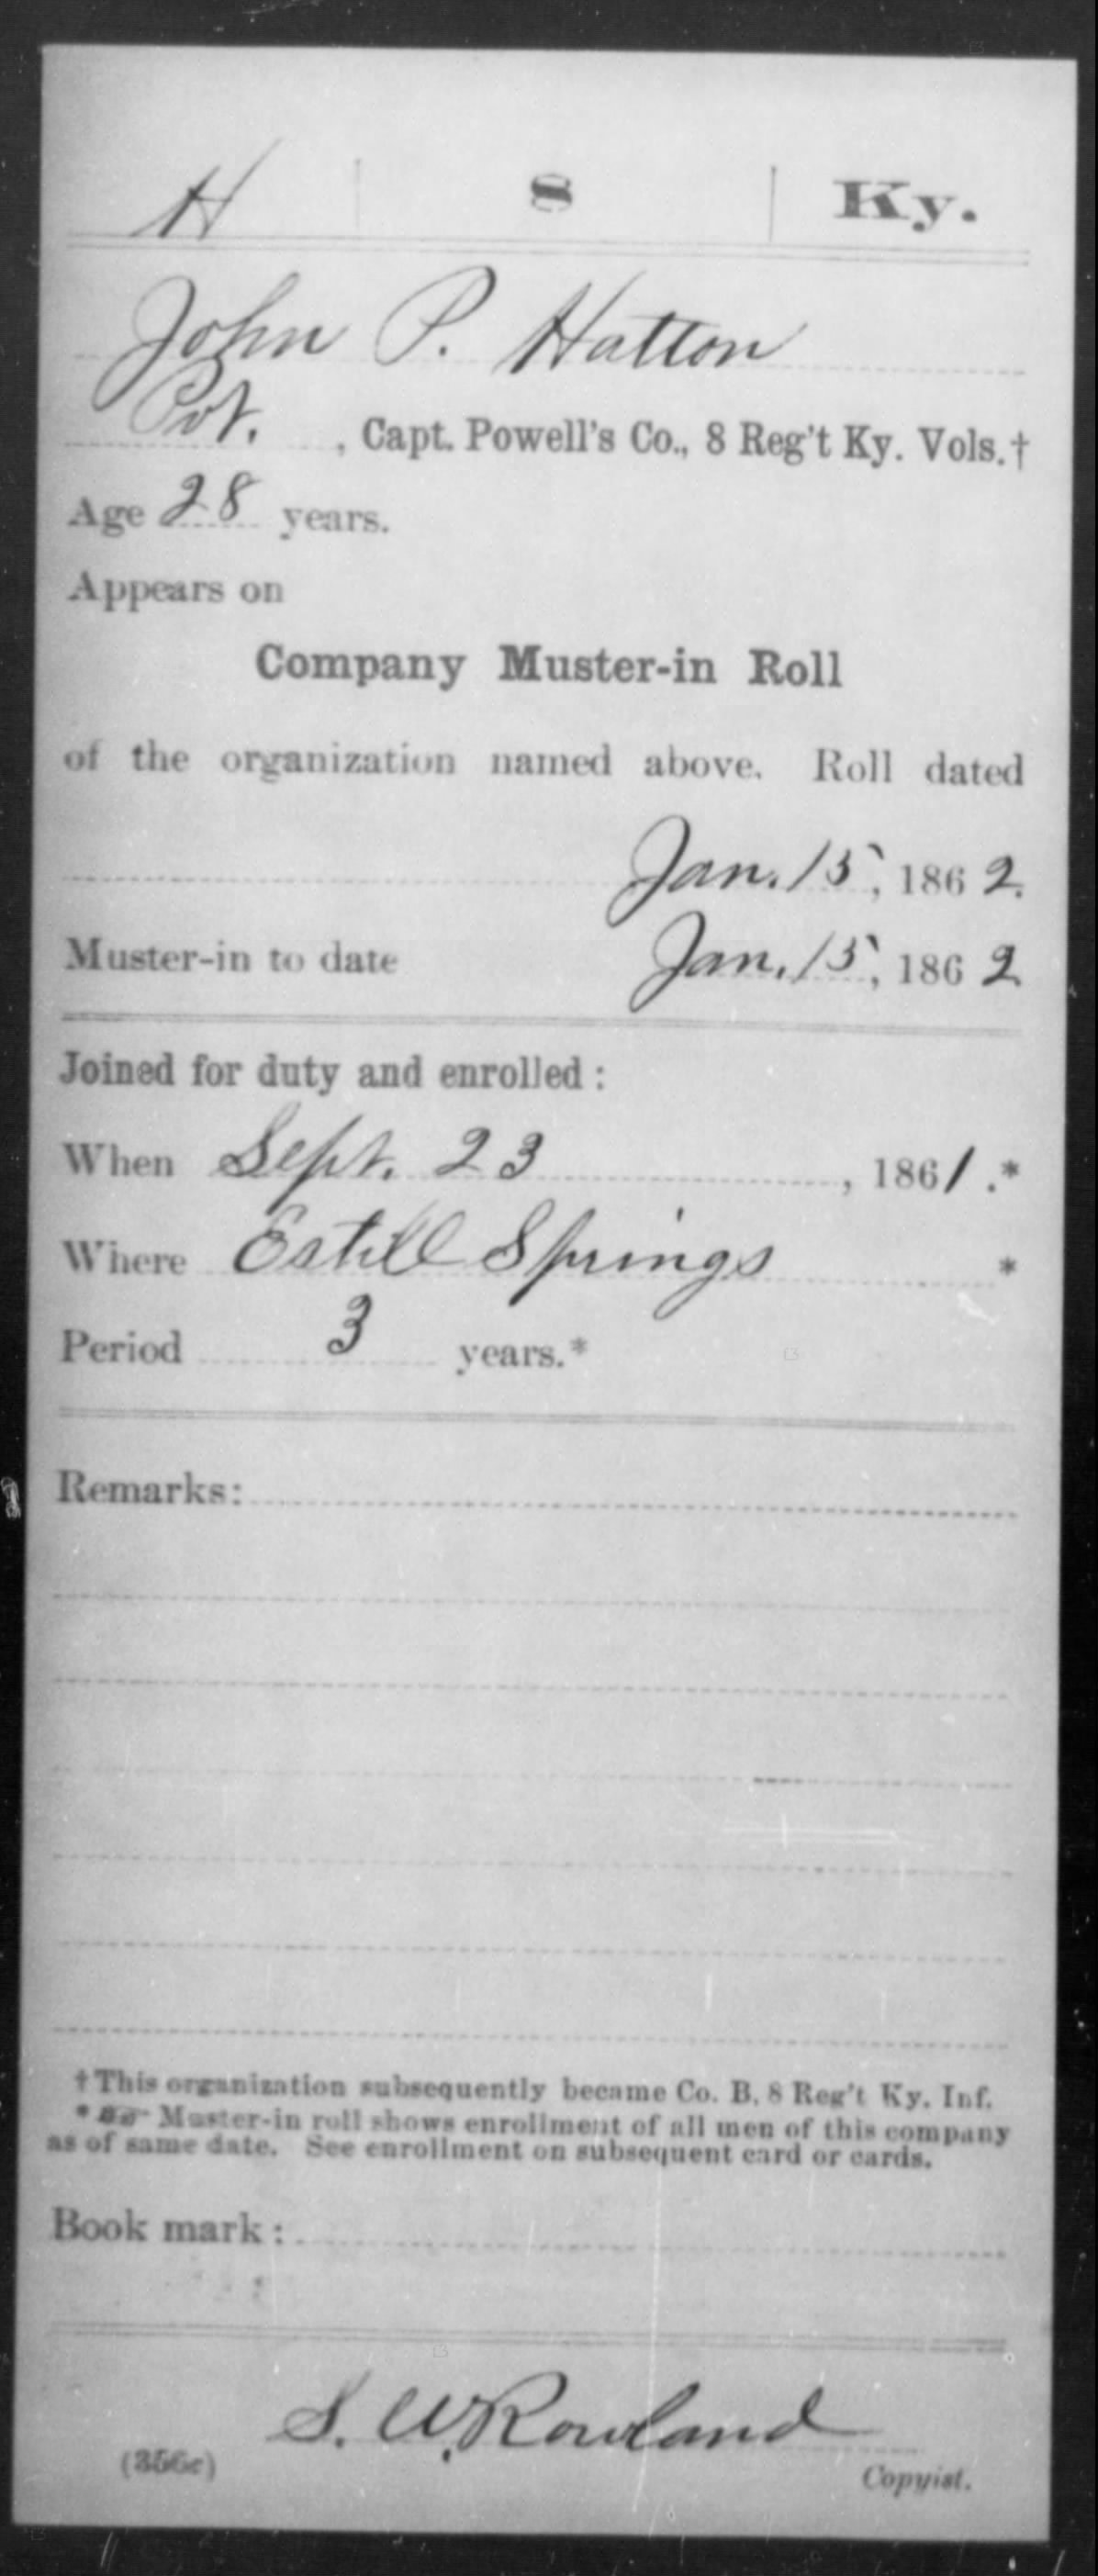 H 8 Ky.
John P. Hatton
Pvt., Capt. Powell's Co., 8 Reg't Ky. Vols.†
Age 28 years.
Appears on
Company Muster-in Roll
of the organization named above. Roll dated
Jan. 15, 1862.
Muster-in to date Jan. 15, 1862
Joined for duty and enrolled:
When Sept. 23, 1861.*
Where Estill Springs *
Period 3 years.*
Remarks:
†This organization subsequently became Co. B, 8 Reg't Ky. Inf.
* Muster-in roll shows enrollment of all men of this company
as of same date. See enrollment on subsequent card or cards.
Book mark:
S. W. Rowland
(356c) Copyist.